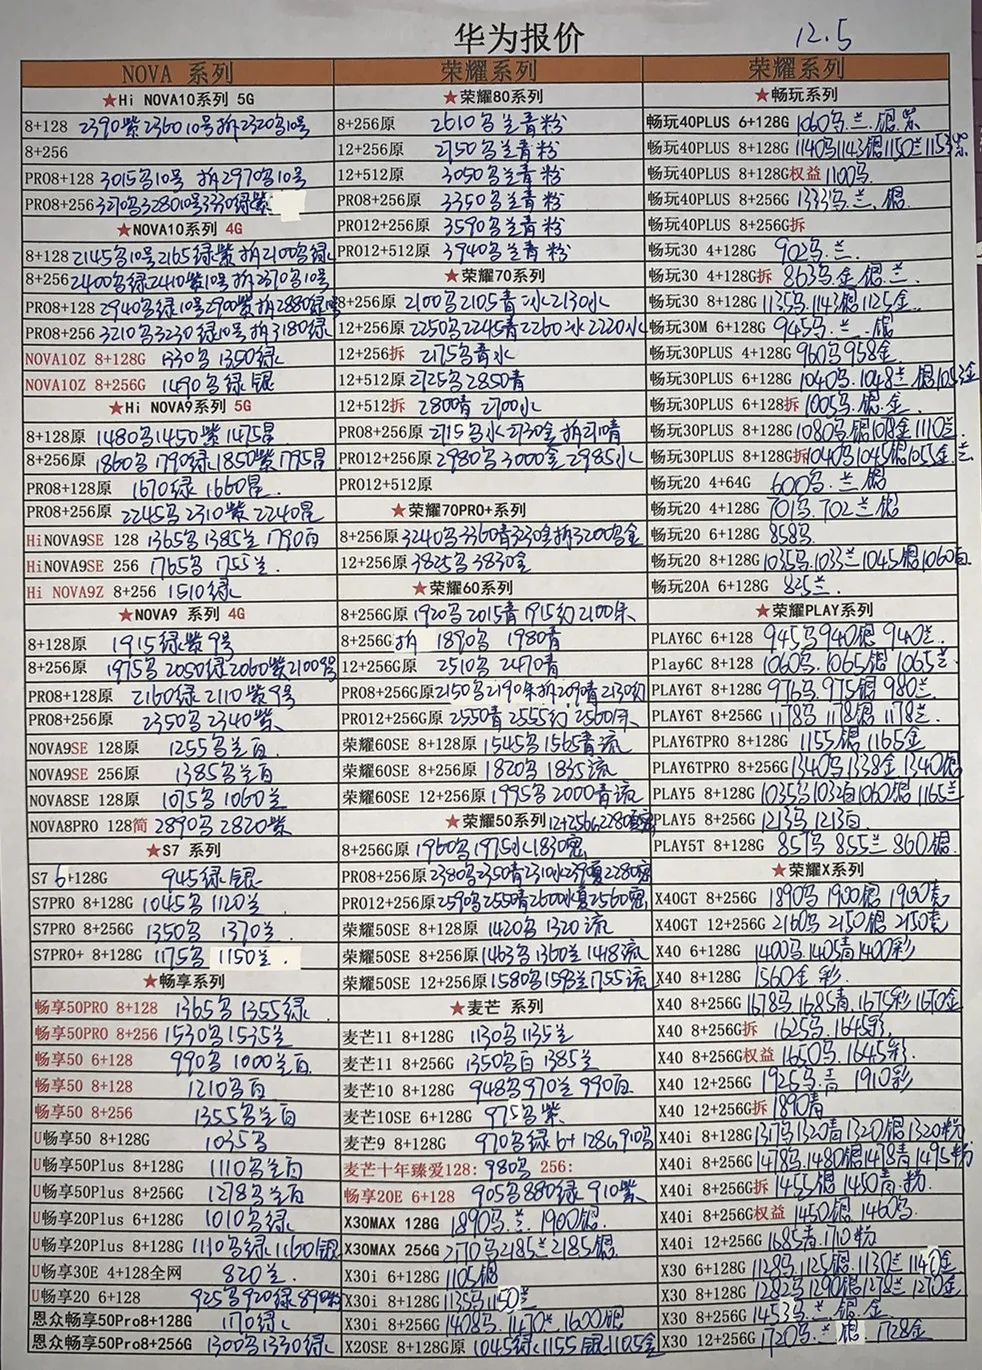 华为报价
12.5
NOVA 系列
★Hi NOVA10系列 5G
8+128 2390紫2360 10号 拆2320 10号
8+256
PRO8+128 3015乌10号 拆2970乌10号
PRO8+256
★NOVA10系列 4G
8+128 2145乌10号2165绿紫拆2100乌绿
8+256 2400乌绿2410紫10号 拆2370乌10号
PRO8+128 2940乌绿10号2900紫拆2880绿
PRO8+256 3210乌3230绿10号 拆3180绿
NOVA10Z 8+128G 1330乌 1350绿
NOVA10Z 8+256G 1490乌绿银
★Hi NOVA9系列 5G
8+128原 1480乌1450紫1475星
8+256原 1860乌1790绿1850紫1795星
PRO8+128原 1670绿 1660星.
PRO8+256原 2245乌 2310紫 2240星
HiNOVA9SE 128 1365乌 1385兰 1790白
HiNOVA9SE 256 1765乌 1755兰.
Hi NOVA9Z 8+256 1510绿
★NOVA9 系列 4G
8+128原 1915绿紫9号
8+256原 1975乌 2050绿2060紫2100 9号
PRO8+128原 2160绿 2110紫9号
PRO8+256原 2350乌 2340紫
NOVA9SE 128原 1255乌兰白
NOVA9SE 256原 1385乌兰白
NOVA8SE 128原 1075乌 1060兰
NOVA8PRO 128简 2890乌 2820紫
★S7 系列
S7 6+128G 945绿银
S7PRO 8+128G 1045乌 1120兰
S7PRO 8+256G 1350乌 1370兰.
S7PRO+ 8+128G 1175乌 1150兰.
★畅享系列
畅享50PRO 8+128 1365乌 1355绿
畅享50PRO 8+256 1530乌1535兰
畅享50 6+128 990乌 1000兰白
畅享50 8+128 1210乌白
畅享50 8+256 1355乌兰白
U畅享50 8+128G 1035乌
U畅享50Plus 8+128G 1110乌兰白
U畅享50Plus 8+256G 1278乌兰白
U畅享20Plus 6+128G 1010乌绿
U畅享20Plus 8+128G 1110乌绿1160银
U畅享30E 4+128全网 820兰.
U畅享20 6+128 925乌920绿890粉
恩众畅享50Pro8+128G 1170绿
恩众畅享50Pro8+256G 1300乌1330绿
荣耀系列
★荣耀80系列
8+256原 2610乌兰青粉
12+256原 2750乌兰青粉
12+512原 3050乌兰青粉
PRO8+256原 3350乌兰青粉
PRO12+256原 3590乌兰青粉
PRO12+512原 3940乌兰青粉
★荣耀70系列
8+256原 2100乌2105青 冰2130水
12+256原 2250乌2245青2260冰2220水
12+256拆 2175乌青水
12+512原 2725乌2850青
12+512拆 2800青 2700水
PRO8+256原 2715乌水2730金
PRO12+256原 2980乌3000金2985水
PRO12+512原
★荣耀70PRO+系列
8+256原 3240乌3360青3230金拆3200乌金
12+256原 3825乌3830金
★荣耀60系列
8+256G原 1920乌2015青1915幻2100朱
8+256G拆 1890乌 1980青
12+256G原 2510乌 2470青
PRO8+256G原 2150乌2190朱拆2090青2130幻
PRO12+256G原 2550青2555幻2560朱
荣耀60SE 8+128原 1545乌1565青流
荣耀60SE 8+256原 1820乌1835流
荣耀60SE 12+256原 1995乌2000青流
★荣耀50系列
8+256G原 1960乌1975水1830蜜
PRO8+256原
PRO12+256原 2590乌2550青2600水夏2560蜜
荣耀50SE 8+128原 1420乌1320流
荣耀50SE 8+256原 1463乌1360兰1418流
荣耀50SE 12+256原 1580乌1593兰1755流
★麦芒 系列
麦芒11 8+128G 1130乌1135兰
麦芒11 8+256G 1350乌白 1385兰
麦芒10 8+128G 948乌970兰990白
麦芒10SE 6+128G 975乌紫
麦芒9 8+128G 970乌绿 6+128G910乌
麦芒十年臻爱128: 980乌 256:
畅享20E 6+128 905乌880绿910紫
X30MAX 128G 1890乌.兰.1960银
X30MAX 256G 2170乌2185兰2185银
X30i 6+128G 1105银
X30i 8+128G 1135乌1150兰
X30i 8+256G 1408乌.1470兰1600银
X20SE 8+128G原 1045绿1155银1105金
荣耀系列
★畅玩系列
畅玩40PLUS 6+128G 1060乌.兰.银.紫
畅玩40PLUS 8+128G 1140乌1143银1150兰1153紫
畅玩40PLUS 8+128G权益 1100乌
畅玩40PLUS 8+256G 1333乌.银
畅玩40PLUS 8+256G拆
畅玩30 4+128G 902乌.兰.
畅玩30 4+128G拆 863乌金银.兰.
畅玩30 8+128G 1135乌.1143银1125金.
畅玩30M 6+128G 945乌.兰.银
畅玩30PLUS 4+128G 960乌958金
畅玩30PLUS 6+128G 1040乌.1048兰 银
畅玩30PLUS 6+128拆 1005乌.银.金.
畅玩30PLUS 8+128G 1080乌银1078金1110兰
畅玩30PLUS 8+128G拆 1040乌1045银1055金.兰
畅玩20 4+64G 600乌.兰银
畅玩20 4+128G 701乌.702兰银
畅玩20 6+128G 858乌
畅玩20 8+128G 1035乌.1033兰1045银1060白
畅玩20A 6+128G 825兰.
★荣耀PLAY系列
PLAY6C 6+128 945乌940银940兰.
Play6C 8+128 1060乌.1065银1065兰.
PLAY6T 8+128G 976乌.975银980兰.
PLAY6T 8+256G 1178乌 1178银1178兰.
PLAY6TPRO 8+128G 1155银1165金
PLAY6TPRO 8+256G 1340乌1338金1340银
PLAY5 8+128G 1035乌1032白1060银1165兰
PLAY5 8+256G 1213乌1213白
PLAY5T 8+128G 857乌 855兰860银.
★荣耀X系列
X40GT 8+256G 1890乌 1900银1900青
X40GT 12+256G 2160乌 2150银2150青
X40 6+128G 1400乌1405青1400彩
X40 8+128G 1560金 彩.
X40 8+256G 1678乌1685青.1675彩1670金
X40 8+256G拆 1625乌.1645彩.
X40 8+256G权益 1650乌.1645彩.
X40 12+256G 1925乌.青 1910彩
X40 12+256G拆 1890青
X40i 8+128G 1317乌1320青1320银1320粉
X40i 8+256G 1478乌.1480银1478青1495粉
X40i 8+256G拆 1455银1450青.粉.
X40i 8+256G权益 1450银1460乌.
X40i 12+256G 1685青.1710粉
X30 6+128G 1128乌.1125银.1130兰1140金
X30 8+128G 1282乌1290银1278兰1270金
X30 8+256G 1453乌.兰.银.金
X30 12+256G 1720乌.兰.银.1728金